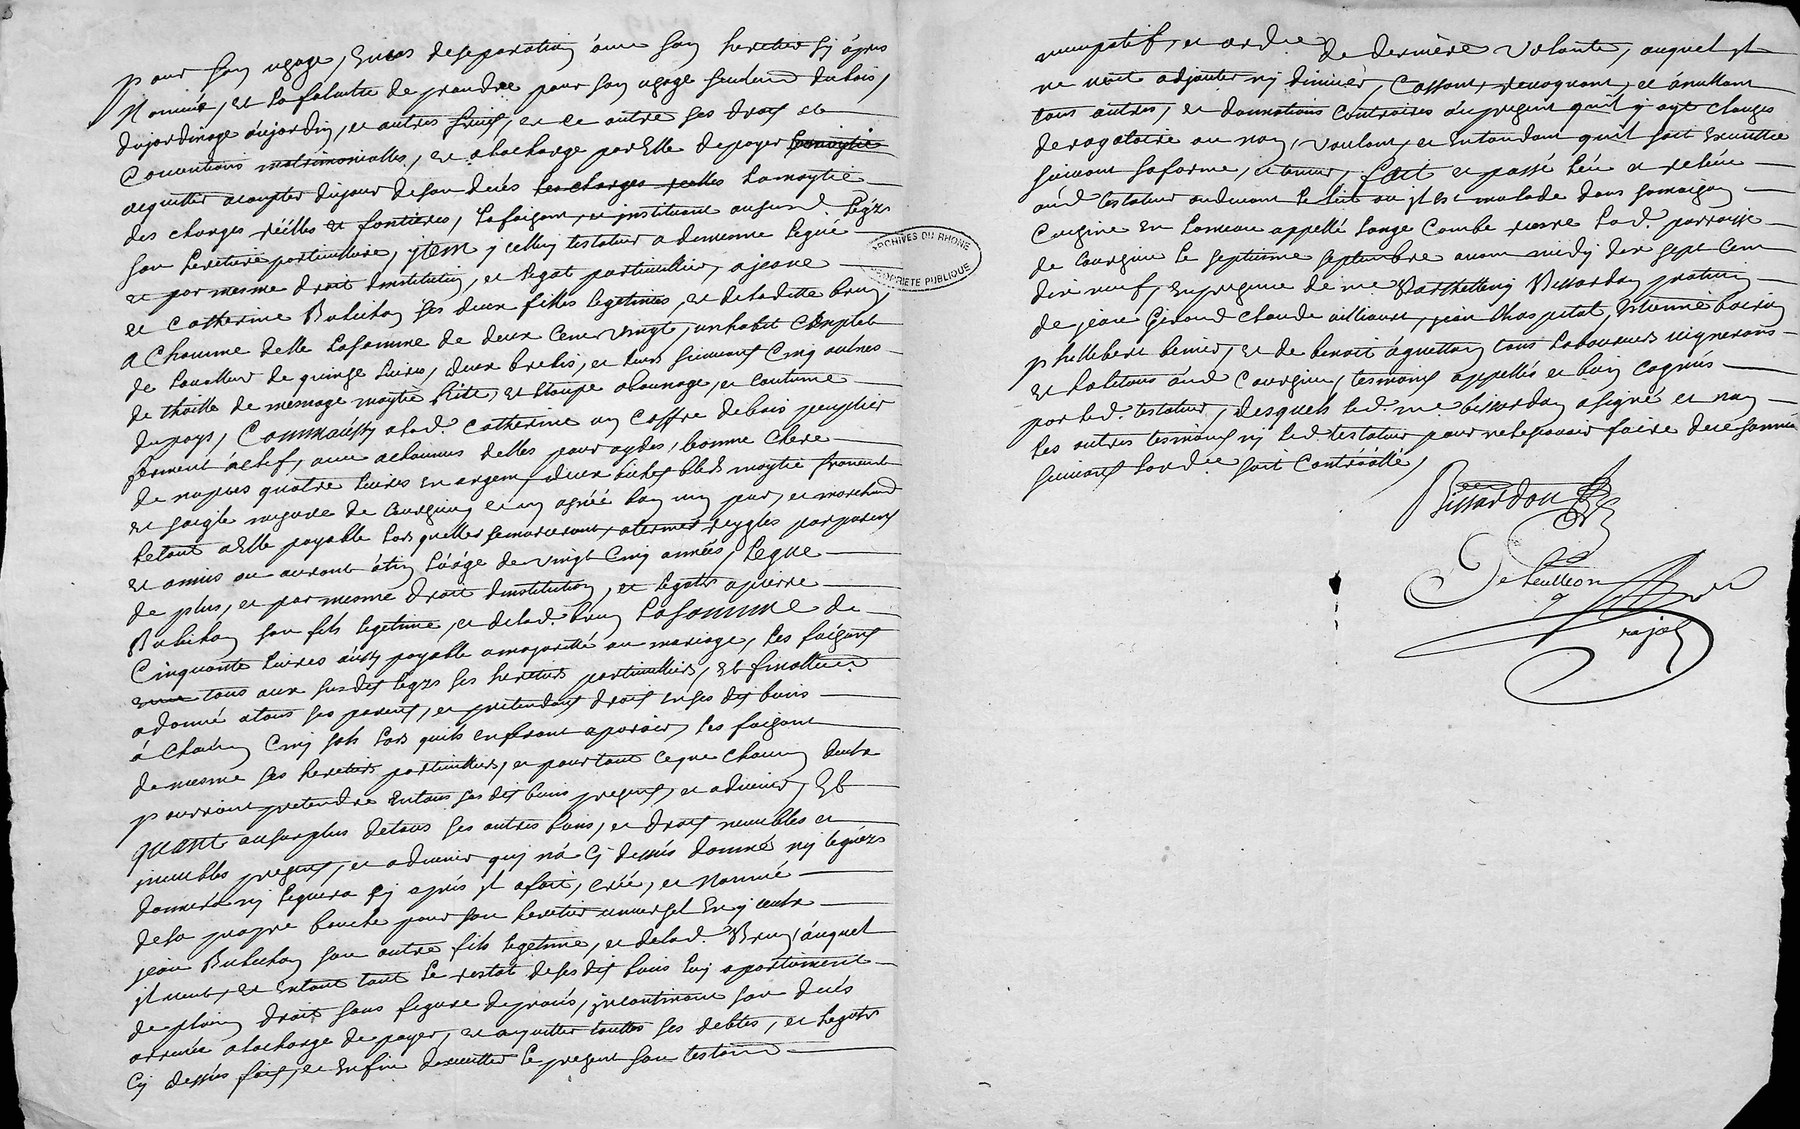 pour son usage, En cas de separation avec son heretier cy apres
Nommé, et la faculté de prandre pour son usage seulemt du bois,
du jardinage au jardin, et autres fruis, et ce outre ses drois et
Conventions matrimonialles, et alacharge par Elle de payer lamoytié
acquitter acompter dujour deson decés les charges réelles lamoytie
des charges réélles et fontieres, la faisant, et instituant ausurd. legs
son heretiere particulliere, ytem y celluy testateur a demesme legué
et par mesme droit dinstitution, et legat particullier, a jeane
et Catherine Buluchon ses deux filles legetimes, et deladitte brun,
a Chacune delle lasomme de deux Cent vingt, un habit Complet
de lavalleur de quinse livres, deux brebis, et leurs suivans Cinq autres
de thoille de mesnage moytié Rite, et étoupe alaunage, et coutume
dupays, Commaussy alad. Catherine un Coffre debois peuplier
ferment aclef, avec achacunes delles pour aydes, bonne Chere
de nopces quatre livres en argent, deux bichets bled moytié froment
et soigle mesure de Courzieu et un agnéé bon vin pur, et marchand
letout aElle payable lors quelles semarieront, atermes reygles par parens
et amis ou auront atin lááge de vingt Cinq années, legue
de plus, et par mesme droit dinstitution, et legats apierre
Buluchon son fils legetime, et delad. brun lasomme de
Cinquante livres aussy payable amajorité ou mariage, les faisant
tous aux susdis legs ses heretiers particulliers, et finallemt
a donné atous ses parens, et pretendans drois en ses dis biens
á Chacun Cinq sols lors quils enferont aparoir, les faisant
demesme ses heretiers particulliers, et pour tout ceque chacun deulx
pourroient pretendre Entous ses dis biens presens, et advenir, Et
quant ausurplus detous ses autres biens, et drois meubles et
jmeubles presens, et advenir quj ná Cy dessus donné nj legués
donnerá nj leguera Cy aprés jl afait, créé, et Nommé
desa propre bouche pour son heretier universel Enj ceulx
jean Buluchon son autre fils legetime, et delad. Brun, auquel
jl veut, et Entant tout le restat desesdis biens luj apartiennent
de plain droit sans figure deprocés, jncontinant son decés
arrivée alacharge de payer, et acquitter touttes ses debtes, et legats
Cy dessus fais, et Enfin dexcutter le present son testamt
nuncupatif, et ordre de derniere volonté, auquel jl
ne veut adjouter nj diminér, Cassant, revoquant, et ánullant
tous autres, et donnations Contraires aupresent quil y aye clauses
derogatoire ou non, voulant, et Entandant quil soit Executté
suivant saforme, et teneur, fait et passé léu et reléu
aud testateur audevant le lit ou jl est malade dans samaison
Cuisine En lameau appellé longe Combe riere lad. parroisse
de Courzieu le septieme septembre avant midy dix sept Cent
dix neuf, enpresence de me Barthellemy Bissardon praticien
de jean Giroud Claude villiaurt, jean Chaspital, Etienne Poirion
phellebert benier, et de benoit aguettan tous laboureurs vignerons
et habitans aud Courzieu, tesmoins appellés et bien cognus
par led. testateur, desquels led. me bissardon asigné et non
les autres tesmoins nj led testateur pour ne lesçavoir faire dece sommé
suivant lordre soit Contréóllé,
Bissardon
ARCHIVES DU RHONE
PROPRIETE PUBLIQUE